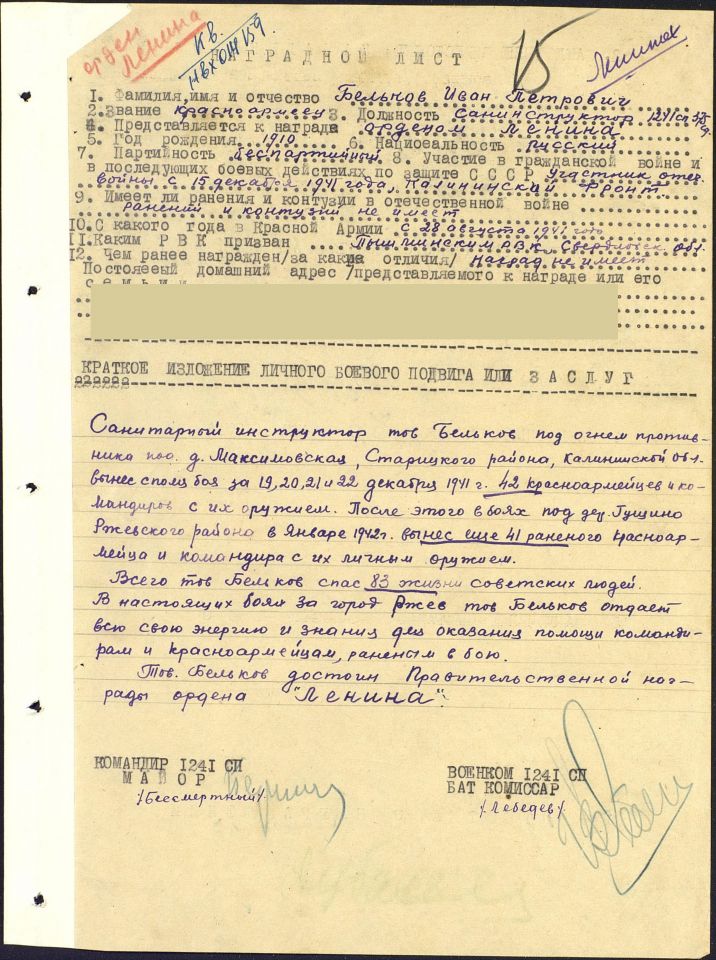 орден
Ленина
КВ.
15
НАГРАДНОЙ ЛИСТ
1. Фамилия,имя и отчество Бельков Иван Петрович
2. Звание красноармеец 3. Должность Санинструктор 1241 сп
4. Представляется к награде орденом Ленина
5. Год рождения 1910 6. Национальность русский
7. Партийность беспартийный 8. Участие в гражданской войне и
в последующих боевых действиях по защите СССР участник отеч.
войны с 15 декабря 1941 года, Калининский Фронт.
9. Имеет ли ранения и контузии в отечественной войне
ранений и контузий не имеет
10. С какого года в Красной Армии с 28 августа 1941 года
11. Каким РВК призван Пышминским РВК, Свердловск обл.
12. Чем ранее награжден/за какие отличия/ наград не имеет
Постоянный домашний адрес /представляемого к награде или его
семьи
КРАТКОЕ ИЗЛОЖЕНИЕ ЛИЧНОГО БОЕВОГО ПОДВИГА ИЛИ ЗАСЛУГ
Санитарный инструктор тов Бельков под огнем против-
ника под д. Максимовская, Старицкого района, Калининской обл.
вынес с поля боя за 19, 20, 21 и 22 декабря 1941 г. 42 красноармейцев и ко-
мандиров с их оружием. После этого в боях под дер. Гущино
Ржевского района в Январе 1942 г. вынес еще 41 раненого красноар-
мейца и командира с их личным оружием.
Всего тов Бельков спас 83 жизни советских людей.
В настоящих боях за город Ржев тов Бельков отдает
всю свою энергию и знания для оказания помощи команди-
рам и красноармейцам, раненым в бою.
Тов. Бельков достоин Правительственной наг-
рады ордена "Ленина".
КОМАНДИР 1241 СП
МАЙОР
/Бессмертный/
ВОЕНКОМ 1241 СП
БАТ КОМИССАР
/Лебедев/